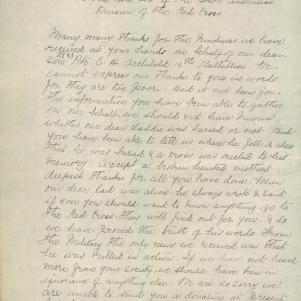 Division of the Red Cross
Many many thanks for the kindness we have
received at your hands on behalf of our dear
son Pte E. H. Archibald 10th Battalion. We
cannot express our thanks to you in words
for they are too poor. Had it not been for
the information you have been able to gather
on our behalf we should not have known
whether our dear Laddie was buried or not. But
you have been able to tell us where he fell & also
that he was buried & a cross was erected to his
memory. Accept a broken hearted mothers
deepest thanks for all you have done. When
our dear lad was alive he always wrote & said
if ever you should want to know anything go to
the Red Cross they will find out for you, & so
we have proved the truth of his words. From
the Military the only news we received was that
he was killed in action. If we had not heard
more from your Society we should have been in
ignorance of anything else. We are so sorry we
are unable to send you a donation at present